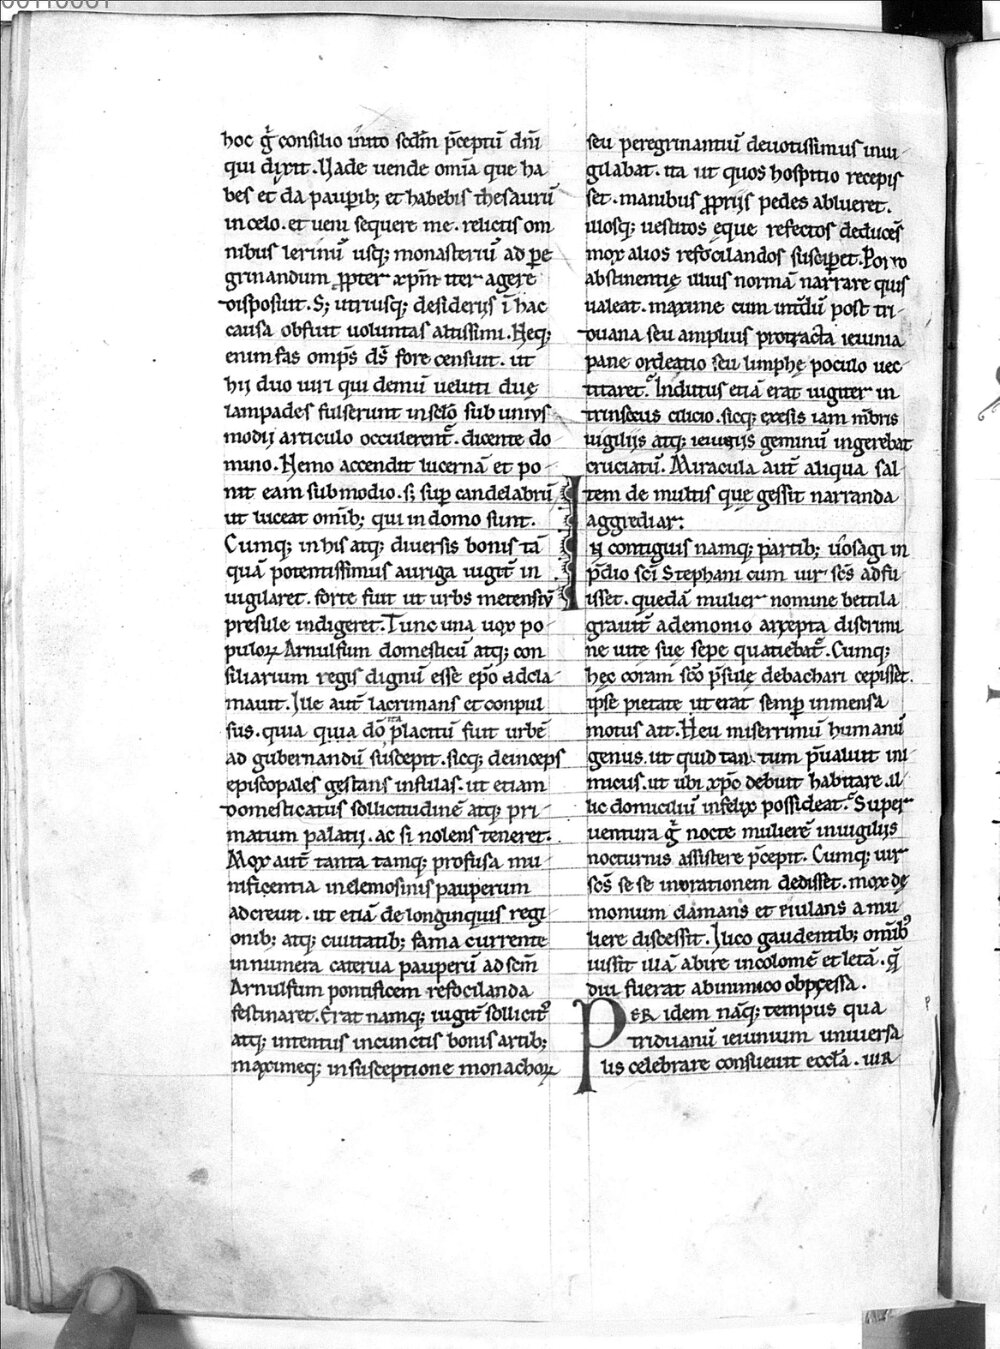 hoc g̃ consilio inito scd̄m p̄ceptū dn̄i
qui dixit. Uade uende omīa que ha
bes et da paupib; et habebis thesaurū
in celo. et ueni sequere me. relictis om
nibus lerinū usq; monasteriū ad pe
grinandum ꝓpter xp̄m iter agere
disposuit. S; utriusq; desiderijs ī hac
causa obfuit uoluntas altissimi. Neq;
enim fas omp̄s d̄s fore censuit. ut
hij duo uiri qui demū ueluti due
lampades fulserunt in sc̄lo sub unius
modij articulo occulerent᷑. dicente do
mino. Nemo accendit lucernā et po
nit eam sub modio. s; sup candelabrū
ut luceat om̄ib; qui in domo sunt.
Cumq; in his atq; diuersis bonis tā
quā potentissimus auriga iugit᷑ in
uigilaret. forte fuit ut urbs metensiū
presule indigeret. Tunc una uox po
puloꝝ Arnulfum domesticū atq; con
siliarium regis dignū esse ep̄o adcla
mauit. Ille aut̄ lacrimans et conpul
sus. quia quia dō ita placitū fuit urbē
ad gubernandū suscepit. sicq; deinceps
episcopales gestans infulas. ut etiam
domesticatus sollicitudinē atq; pri
matum palatij. ac si nolens teneret.
Mox aut̄ tanta tamq; profusa mu
nificentia in elemosinis pauperum
adcreuit. ut etiā de longinquis regi
onib; atq; ciuitatib; fama currente
innumera caterua pauperū ad sc̄m
Arnulfum pontificem refocilanda
festinaret. Erat namq; iugit᷑ sollicitꝰ
atq; intentus in cunctis bonis artib;
maximeq; in susceptione monachoꝝ
seu peregrinantiū deuotissimus inui
gilabat. ita ut quos hospitio recepis
set. manibus ꝓprijs pedes ablueret.
illosq; uestitos eque refectos deducēs
mox alios refocilandos susciperet. Porro
abstinentię illius normā narrare quis
ualeat. maxime cum int̄dū post tri
duana seu amplius protracta ieiunia
pane ordeatio seu limphę poculo uec
titaret᷑. Indutus etiā erat iugiter in
trinsecus cilicio. sicq; exesis iam mēbris
uigilijs atq; ieiunijs geminū ingerebat
cruciatū. Miracula aut̄ aliqua sal
tem de multis que gessit narranda
aggrediar.
IN contiguis namq; partib; uosagi in
p̄dio sc̄i Stephani cum uir sc̄s adfu
isset. quedā mulier nomine bettila
grauit᷑ a demonio arrepta discrimi
ne uite sue sepe quatiebat᷑. Cumq;
hęc coram sc̄o p̄sule debachari cepisset.
ipse pietate ut erat semp inmensa
motus ait. Heu miserrimū humanū
genus. ut quid tantum p̄ualuit ini
micus. ut ubi xp̄c debuit habitare. il
lic domiciliū infelix possideat. Super
uentura g̃ nocte mulierē in uigilijs
nocturnis assistere p̄cepit. Cumq; uir
sc̄s se se in orationem dedisset. mox dę
monium clamans et eiulans a mu
liere discessit. Ilico gaudentib; om̄ibꝰ
iussit illā abire incolomē et letā. q̄
diu fuerat ab inimico obp̄ssa.
PER idem nāq; tempus qua
triduanū ieiunium uniuersa
lis celebrare consueuit eccl̄a. uir